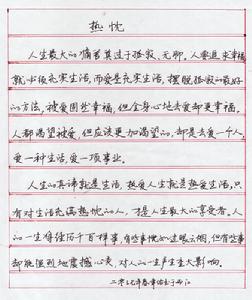 热忱
人生最大的痛苦莫过于孤寂、无聊。人要追求幸福
就必须充实生活,而爱是充实生活,摆脱孤寂的最好
的方法,被爱固然幸福,但全身心地去爱却更幸福。
人都渴望被爱,但应该更加渴望的,却是去爱一个人,
爱一种生活,爱一项事业。
人生的真谛就是生活,热爱人生就是热爱生活,只
有对生活充满热忱的人,才是人生最大的享受者。人
的一生将经历千百样事,有些事恍如过眼云烟,但有些事
却能强烈地震撼心灵,对人的一生产生重大影响。